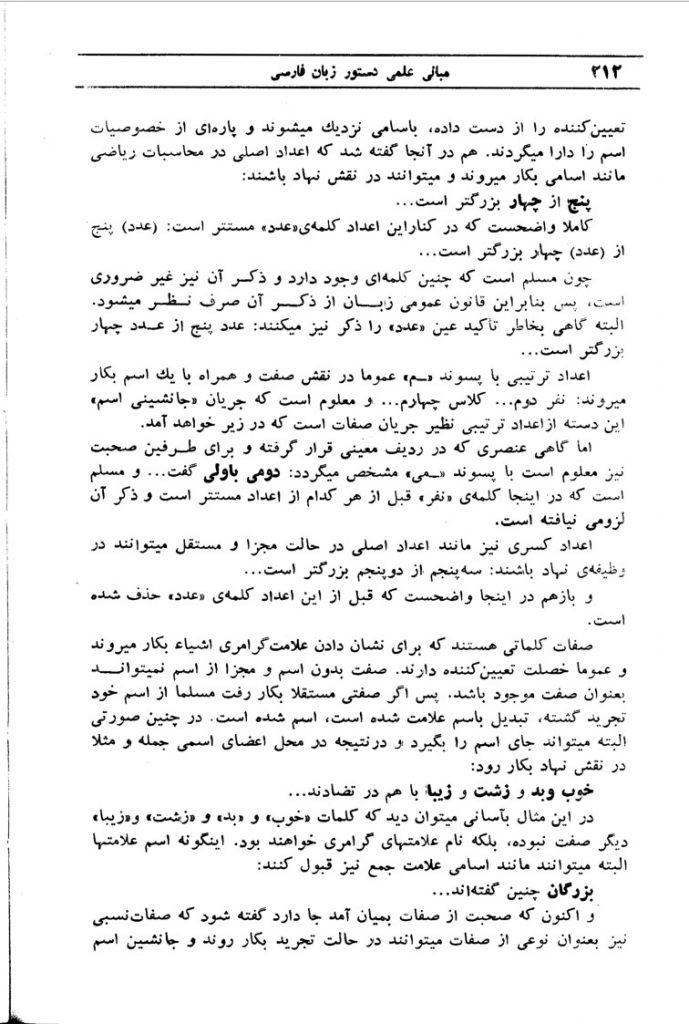 ۲۱۲ مبانی علمی دستور زبان فارسی
تعیین‌کننده را از دست داده، باسامی نزدیك میشوند و پاره‌ای از خصوصیات
اسم را دارا میگردند. هم در آنجا گفته شد که اعداد اصلی در محاسبات ریاضی
مانند اسامی بکار میروند و میتوانند در نقش نهاد باشند:
پنج از چهار بزرگتر است...
کاملا واضحست که در کنار این اعداد کلمه‌ی «عدد» مستتر است: (عدد) پنج
از (عدد) چهار بزرگتر است...
چون مسلم است که چنین کلمه‌ای وجود دارد و ذکر آن نیز غیر ضروری
است، پس بنابراین قانون عمومی زبان از ذکر آن صرف نظر میشود.
البته گاهی بخاطر تأکید عین «عدد» را ذکر نیز میکنند: عدد پنج از عدد چهار
بزرگتر است...
اعداد ترتیبی با پسوند «ـم» عموما در نقش صفت و همراه با یك اسم بکار
میروند: نفر دوم... کلاس چهارم... و معلوم است که جریان «جانشینی اسم»
این دسته از اعداد ترتیبی نظیر جریان صفات است که در زیر خواهد آمد.
اما گاهی عنصری که در ردیف معینی قرار گرفته و برای طرفین صحبت
نیز معلوم است با پسوند «ـمی» مشخص میگردد: دومی باولی گفت... و مسلم
است که در اینجا کلمه‌ی «نفر» قبل از هر کدام از اعداد مستتر است و ذکر آن
لزومی نیافته است.
اعداد کسری نیز مانند اعداد اصلی در حالت مجزا و مستقل میتوانند در
وظیفه‌ی نهاد باشند: سه‌پنجم از دوپنجم بزرگتر است...
و بازهم در اینجا واضحست که قبل از این اعداد کلمه‌ی «عدد» حذف شده
است.
صفات کلماتی هستند که برای نشان دادن علامت گرامری اشیاء بکار میروند
و عموما خصلت تعیین‌کننده دارند. صفت بدون اسم و مجزا از اسم نمیتواند
بعنوان صفت موجود باشد. پس اگر صفتی مستقلا بکار رفت مسلما از اسم خود
تجرید گشته، تبدیل باسم علامت شده است، اسم شده است. در چنین صورتی
البته میتواند جای اسم را بگیرد و درنتیجه در محل اعضای اسمی جمله و مثلا
در نقش نهاد بکار رود:
خوب وبد و زشت و زیبا با هم در تضادند...
در این مثال بآسانی میتوان دید که کلمات «خوب» و «بد» و «زشت» و«زیبا»
دیگر صفت نبوده، بلکه نام علامتهای گرامری خواهند بود. اینگونه اسم علامتها
البته میتوانند مانند اسامی علامت جمع نیز قبول کنند:
بزرگان چنین گفته‌اند...
و اکنون که صحبت از صفات بمیان آمد جا دارد گفته شود که صفات نسبی
نیز بعنوان نوعی از صفات میتوانند در حالت تجرید بکار روند و جانشین اسم